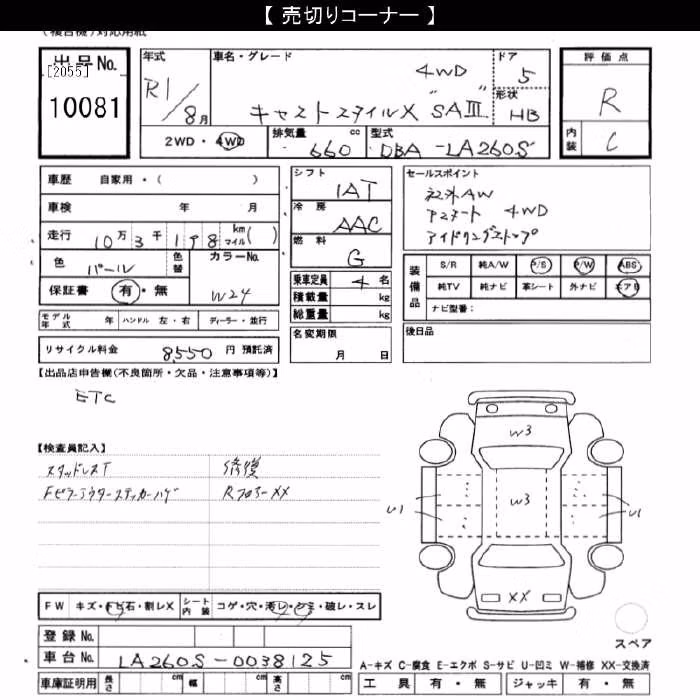 【 売切りコーナー 】
(複合機)対応用紙
出品No.
[2055]
10081
年式
R1/8月
車名・グレード
4WD
キャストスタイルX "SAⅢ"
ドア
5
形状
HB
2WD・4WD
排気量 cc
660
型式
DBA-LA260S
評価点
R
内装
C
車歴 自家用・( )
車検 年 月
走行 10万3千198 km マイル( )
色 パール
色替
カラーNo.
W24
保証書 有・無
モデル年式 年 ハンドル 左・右 ディーラー・並行
リサイクル料金 8550円 預託済
シフト
IAT
冷房
AAC
燃料
G
乗車定員 4名
積載量 kg
総重量 kg
名変期限
月 日
セールスポイント
社外AW
アスマート 4WD
アイドリングストップ
装備品
S/R 純A/W P/S P/W ABS
純TV 純ナビ 革シート 外ナビ エアB
ナビ型番:
後日品
【出品店申告欄(不良箇所・欠品・注意事項等)】
ETC
【検査員記入】
スタッドレスT
Fピラーアウターステッカーハゲ
修復
Rフロアー××
W3
W3
U1
U1
××
スペア
FW キズ・トビ石・割レX
シート内装 コゲ・穴・汚レ・シミ・破レ・スレ
登録No.
車台No. LA260S-0038125
車庫証明用 長さ cm 幅 cm 高さ cm
A-キズ C-腐食 E-エクボ S-サビ U-凹ミ W-補修 XX-交換済
工具 有・無 ジャッキ 有・無